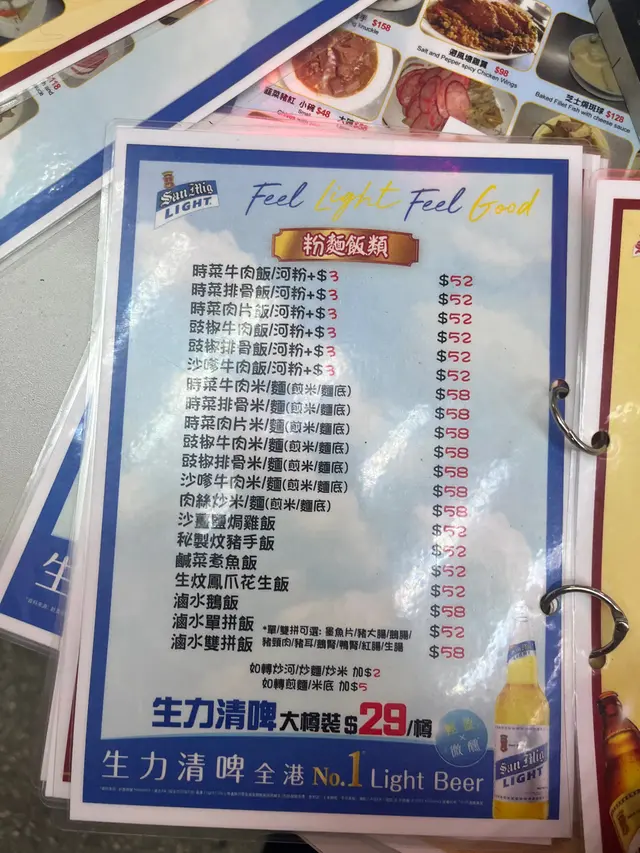 $158
ng knuckle
避風塘雞翼 $98
Salt and Pepper spicy Chicken Wings
芝士焗斑球 $128
Baked Fillet Fish with cheese sauce
韮菜豬紅 小碗 $48 大碗
$118
San Mig
LIGHT
Feel Light Feel Good
粉麵飯類
時菜牛肉飯/河粉+$3 $52
時菜排骨飯/河粉+$3 $52
時菜肉片飯/河粉+$3 $52
豉椒牛肉飯/河粉+$3 $52
豉椒排骨飯/河粉+$3 $52
沙嗲牛肉飯/河粉+$3 $52
時菜牛肉米/麵(煎米/麵底) $58
時菜排骨米/麵(煎米/麵底) $58
時菜肉片米/麵(煎米/麵底) $58
豉椒牛肉米/麵(煎米/麵底) $58
豉椒排骨米/麵(煎米/麵底) $58
沙嗲牛肉米/麵(煎米/麵底) $58
肉絲炒米/麵(煎米/麵底) $58
沙薑鹽焗雞飯 $52
秘製炆豬手飯 $52
鹹菜煮魚飯 $52
生炆鳳爪花生飯 $52
滷水鵝飯 $58
滷水單拼飯 $52
滷水雙拼飯 $58
•單/雙拼可選: 墨魚片/豬大腸/鵝腸/
豬頸肉/豬耳/鵝腎/鴨腎/紅腸/生腸
如轉炒河/炒麵/炒米 加$2
如轉煎麵/米底 加$5
生力清啤 大樽裝 $29/樽
輕盈
×
微醺
生力清啤 全港 No.1 Light Beer
San Mig
LIGHT